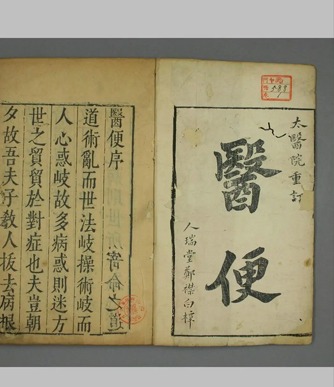 太醫院重訂
醫便
人瑞堂鄭襟白梓
醫便序
道術亂而世法岐操術岐而
人心惑岐故多病惑則迷方
世之貿貿於對症也夫豈朝
夕故吾夫子教人拔去病根